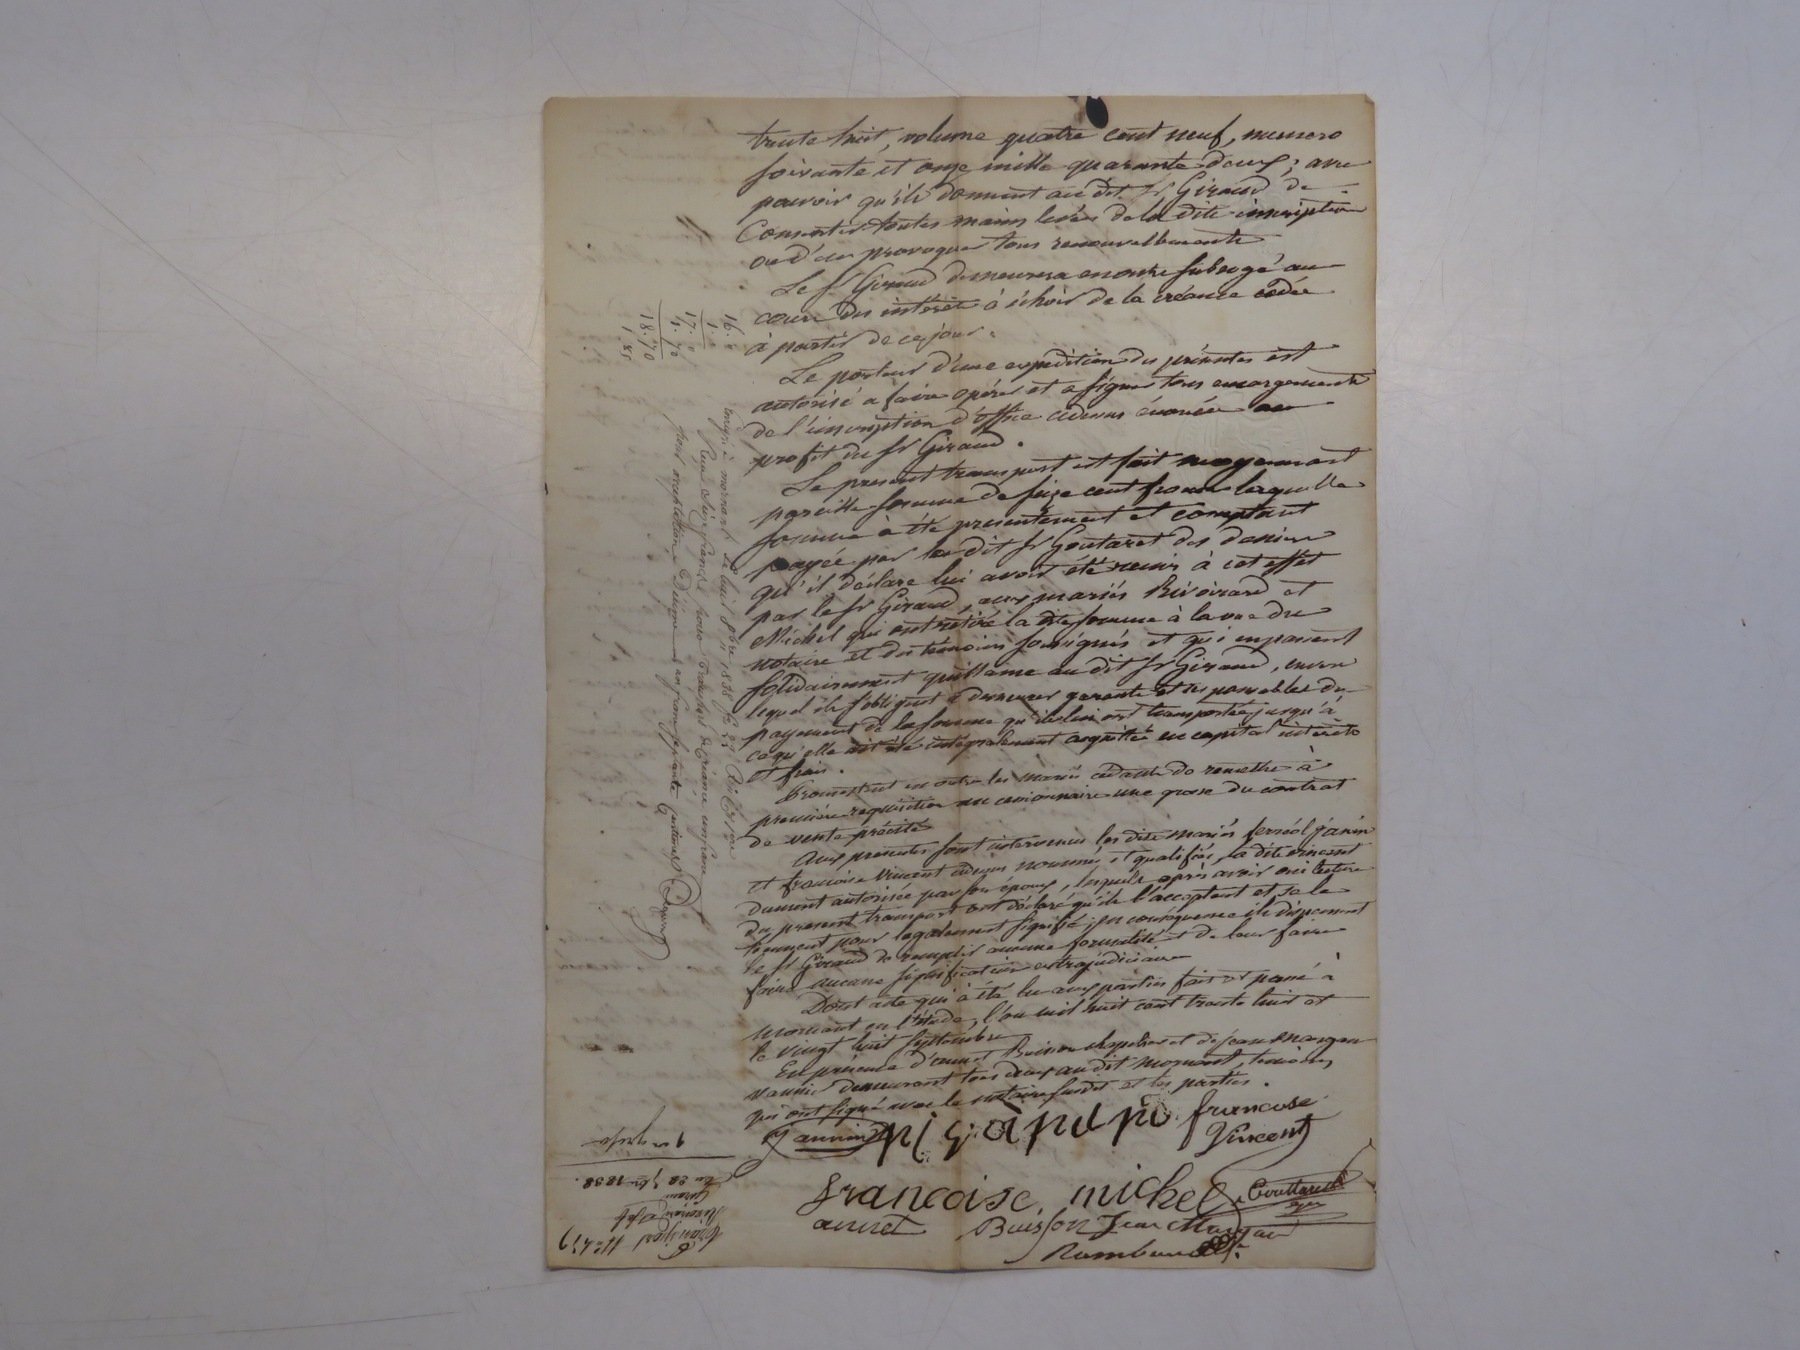 trente huit, volume quatre cent neuf, numero
soixante et onze mille quarante deux; avec
pouvoir qu'ils donnent au dit Sr Giraud de
Consentir toutes mains levées de la dite inscription
ou d'en provoquer tous renouvellements
Le Sr Giraud demeurera en outre subrogé au
cours des intérêts à échoir de la créance cédée
à partir de ce jour.
Le porteur d'une expédition des présentes est
autorisé a faire opérer et a signer tous emargements
de l'inscription d'office cidessus énoncée au
profit du Sr Giraud.
Le present transport est fait moyennant
pareille somme de seize cent francs laquelle
somme à été presentement et comptant
payée par le dit Sr Goutaret des deniers
qu'il déclare lui avoir été remis à cet effet
par le Sr Giraud, aux mariés Rivoirard et
Michel qui ont retiré la dite somme à la vue du
notaire et des témoins soussignés et qui en passent
solidairement quittance au dit Sr Giraud, envers
lequel ils s'obligent à demeurer garants et responsables du
payement de la somme qu'ils lui ont transportée jusqu'à
cequ'elle ait été intégralement acquittée en capital intérêts
et frais.
Promettent en outre les mariés cédants de remettre à
première requisition au cessionnaire une grosse du contrat
de vente précité
Aux presentes sont intervenus les dits mariés ferréol janin
et francoise Vincent cidessus nommés et qualifiés, la dite vincent
dument autorisée par son époux, lesquels après avoir oui lecture
du present transport ont déclaré qu'ils l'acceptent et se le
tiennent pour legalement signifié; en conséquence ils dispensent
le Sr Giraud de remplir aucune formalité et de leur faire
faire aucune signification extrajudiciaire
Dont acte qui à été lu aux parties fait et passé à
mornant en l'étude, l'an mil huit cent trente huit et
le vingt huit septembre
En présence d'annet Buisson chapelier et de jean Margan
vannier demeurant tous deux au dit mornant, temoins,
qui ont signé avec le notaire susdit et les parties.
Jannin francoise
Vincent
francoise michel Gouttaret
annet Buisson Jean Margan
Rambaud
16. "
1. "
17. "
1. 70
18. 70
1. 85
1838
Reçu seize francs pour transport de créance un franc
pour acceptation, Décime un franc septante centimes
1re grosse
Du 28 7bre 1838.
Giraud
Transport